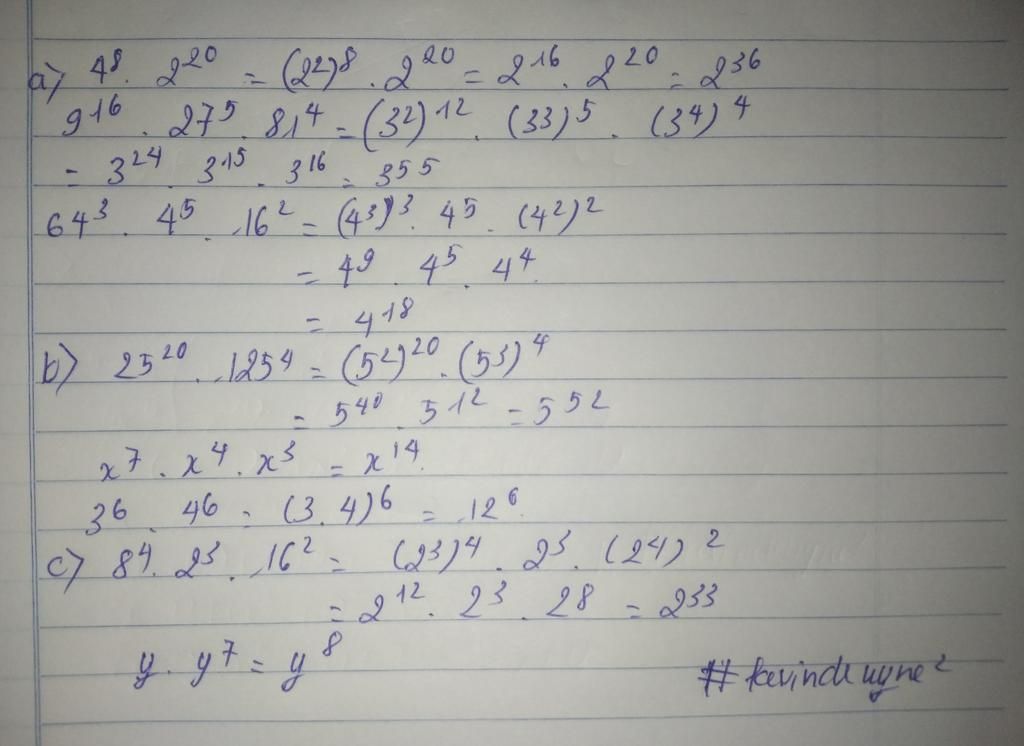 a) 4⁸ . 2²⁰ = (2²)⁸ . 2²⁰ = 2¹⁶ . 2²⁰ = 2³⁶
9¹⁶ . 27⁵ . 81⁴ = (3²)¹² . (3³)⁵ . (3⁴)⁴
= 3²⁴ . 3¹⁵ . 3¹⁶ = 3⁵⁵
64³ . 4⁵ . 16² = (4³)³ . 4⁵ . (4²)²
= 4⁹ . 4⁵ . 4⁴
= 4¹⁸
b) 25²⁰ . 125⁴ = (5²)²⁰ . (5³)⁴
= 5⁴⁰ . 5¹² = 5⁵²
x⁷ . x⁴ . x³ = x¹⁴
3⁶ . 4⁶ = (3.4)⁶ = 12⁶
c) 8⁴ . 2³ . 16² = (2³)⁴ . 2³ . (2⁴)²
= 2¹² . 2³ . 2⁸ = 2³³
y . y⁷ = y⁸